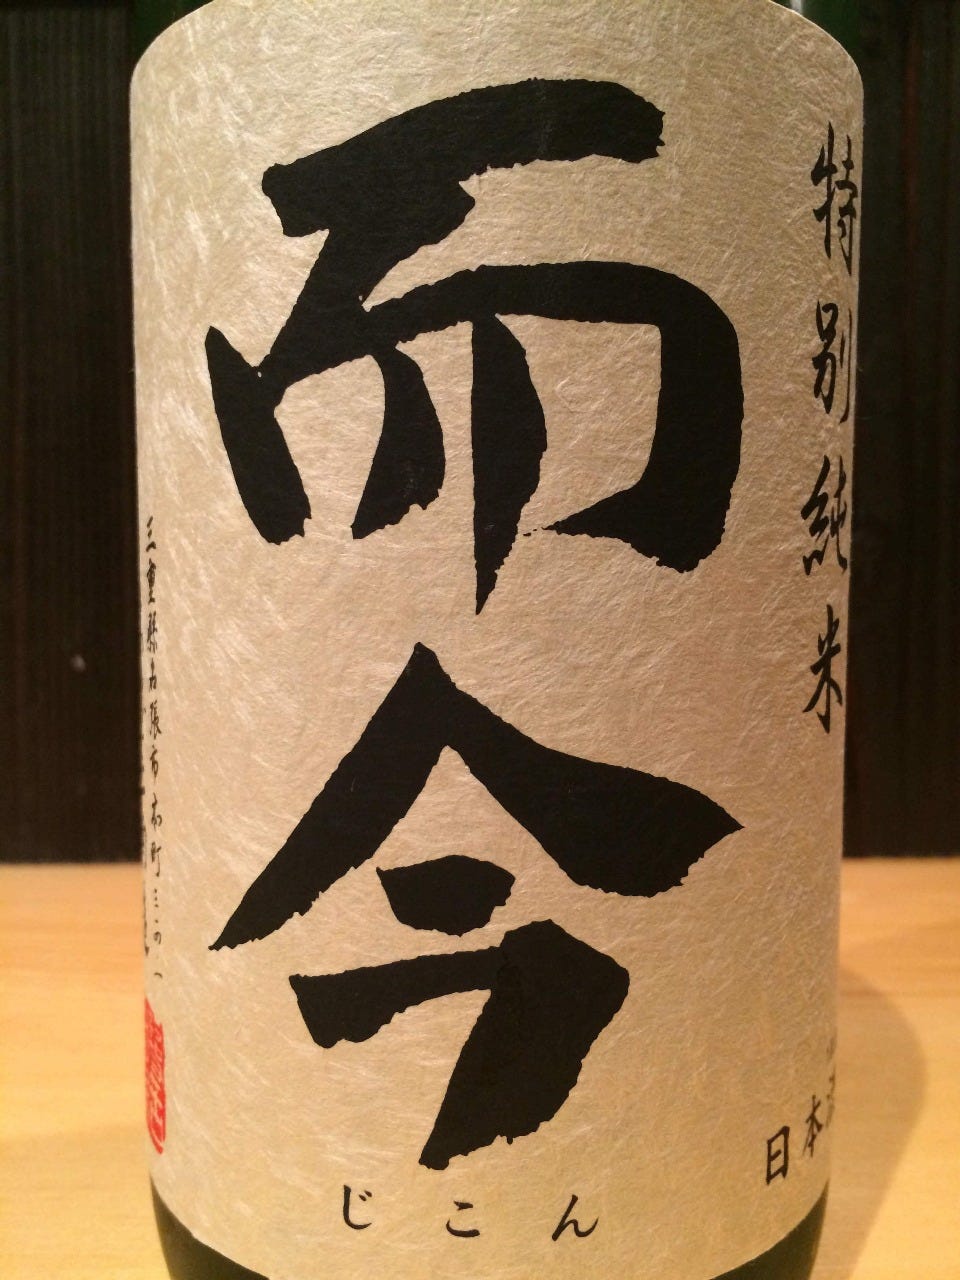 特別純米
而今
じこん
三重縣名張市本町三二の一
日本酒